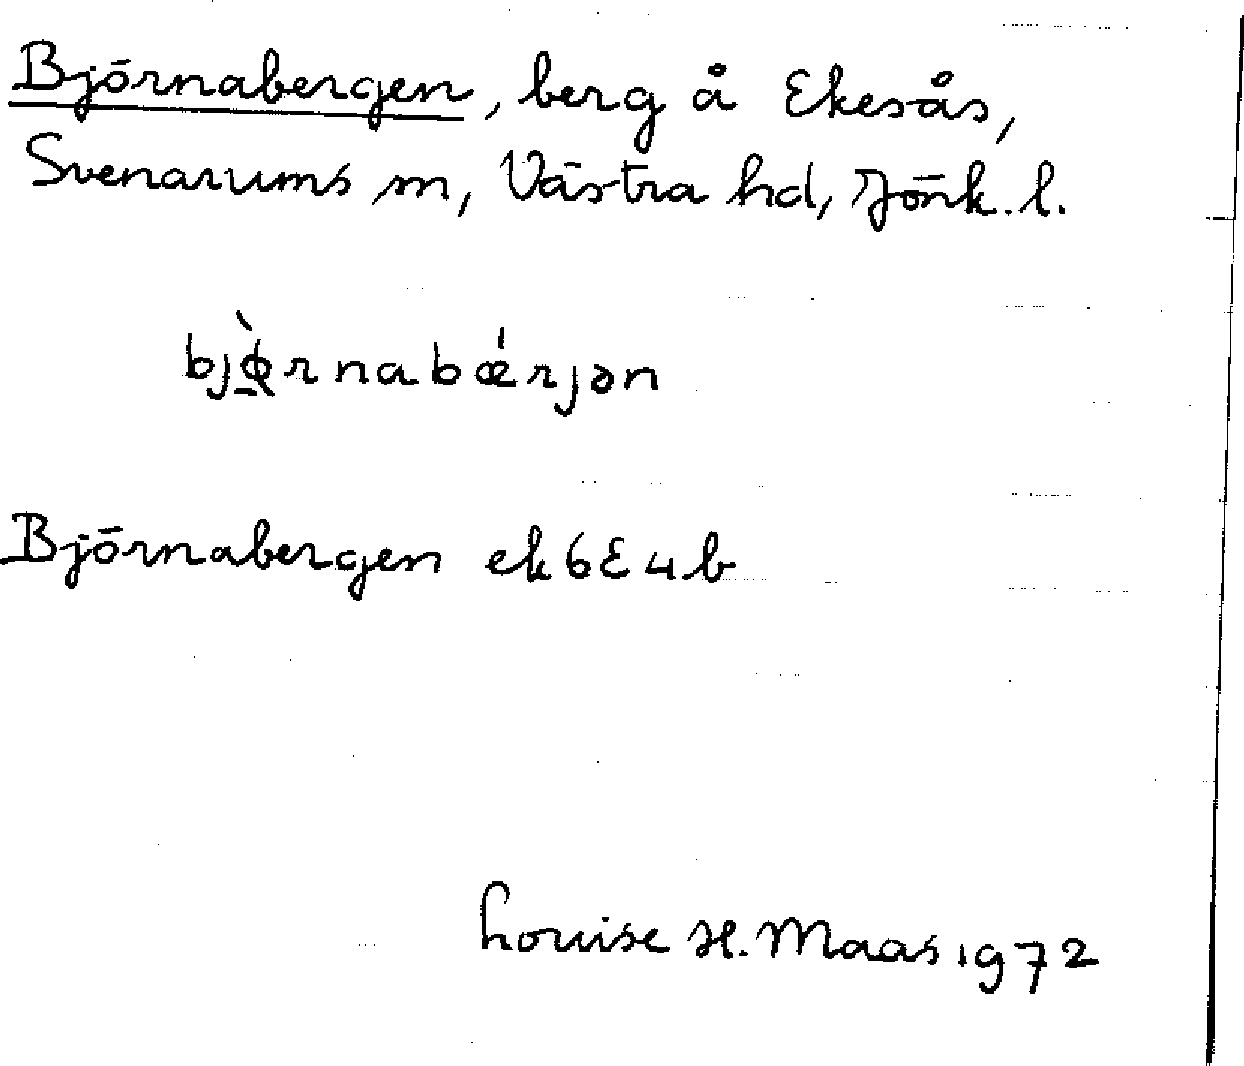 Björnabergen, berg å Ekesås,
Svenarums sn, Västra hd, Jönk. l.
bjø̀rnabǽrjən
Björnabergen ek 6E4b
Louise H. Maas 1972